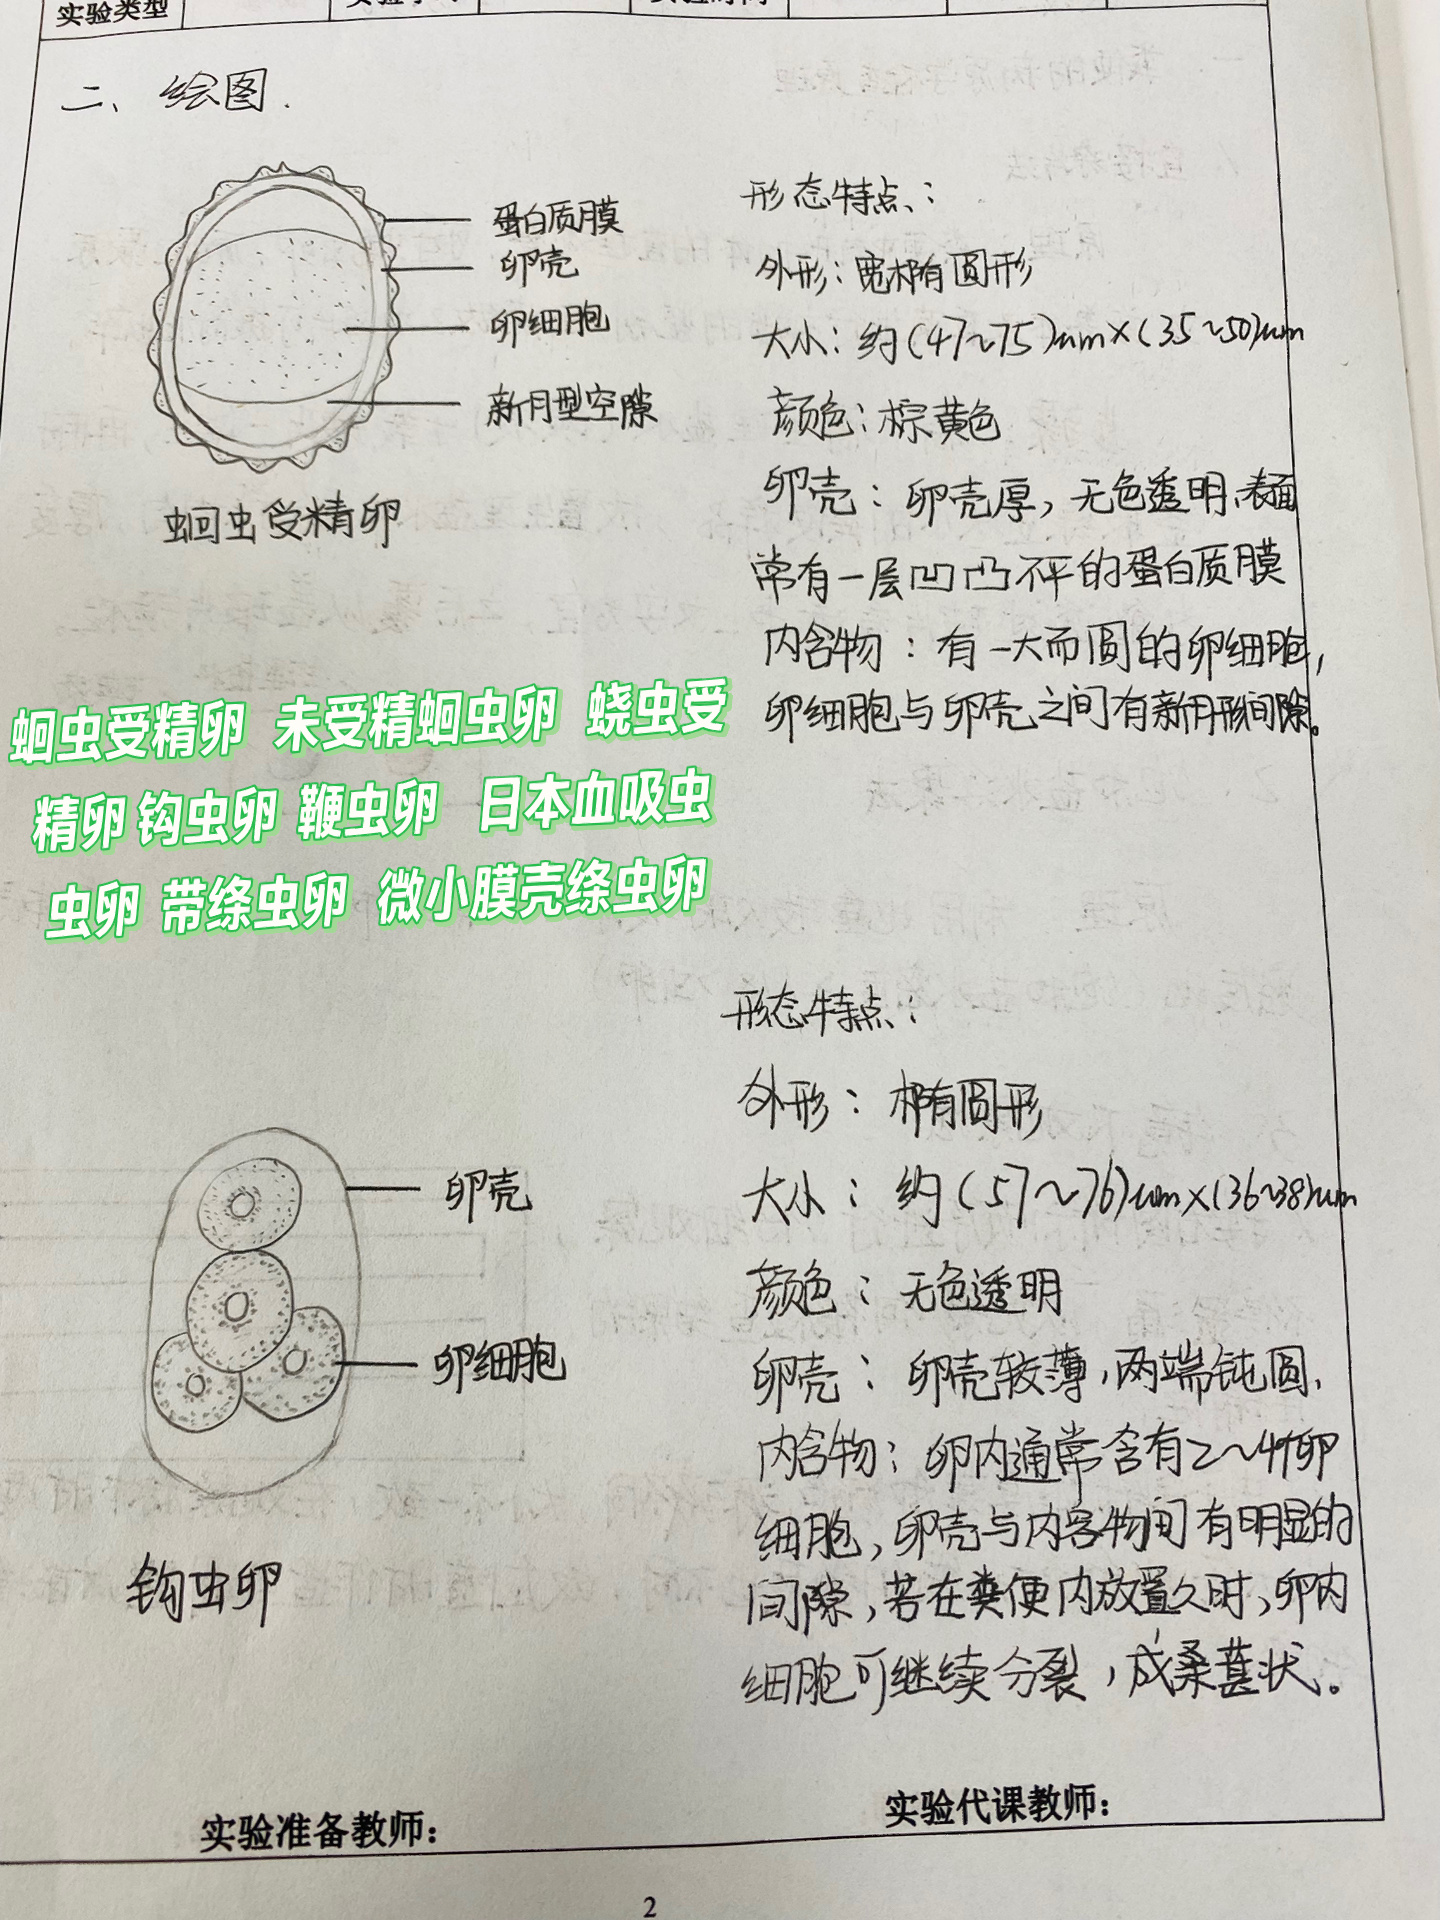 实验类型
二、绘图.
蛋白质膜
卵壳
卵细胞
新月型空隙
蛔虫受精卵
形态特点：
外形：宽椭圆形
大小：约(47~75)um×(35~50)um
颜色：棕黄色
卵壳：卵壳厚，无色透明，表面
常有一层凹凸不平的蛋白质膜
内含物：有一大而圆的卵细胞，
卵细胞与卵壳之间有新月形间隙。
蛔虫受精卵 未受精蛔虫卵 蛲虫受
精卵 钩虫卵 鞭虫卵 日本血吸虫
虫卵 带绦虫卵 微小膜壳绦虫卵
卵壳
卵细胞
钩虫卵
形态特点：
外形：椭圆形
大小：约(57~76)um×(36~38)um
颜色：无色透明
卵壳：卵壳较薄，两端钝圆，
内含物：卵内通常含有2~4个卵
细胞，卵壳与内容物间有明显的
间隙，若在粪便内放置久时，卵内
细胞可继续分裂，成桑葚状。
实验准备教师：
实验代课教师：
2